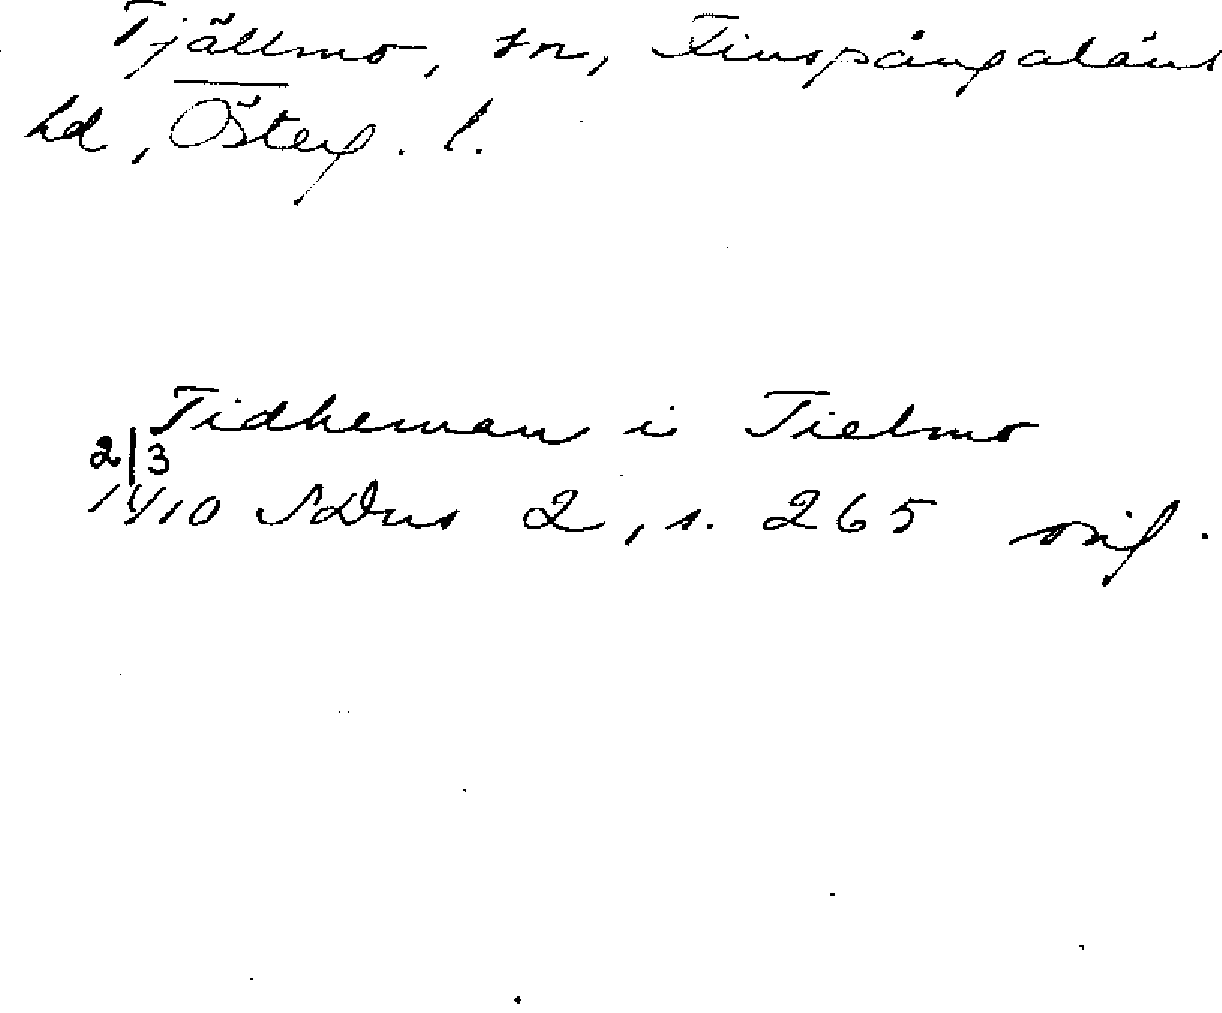 Tjällmo, sn, Finspångaläns
hd, Österg. l.
Tidheman i Tielmo
2/3
1410 SDns 2, s. 265 orig.